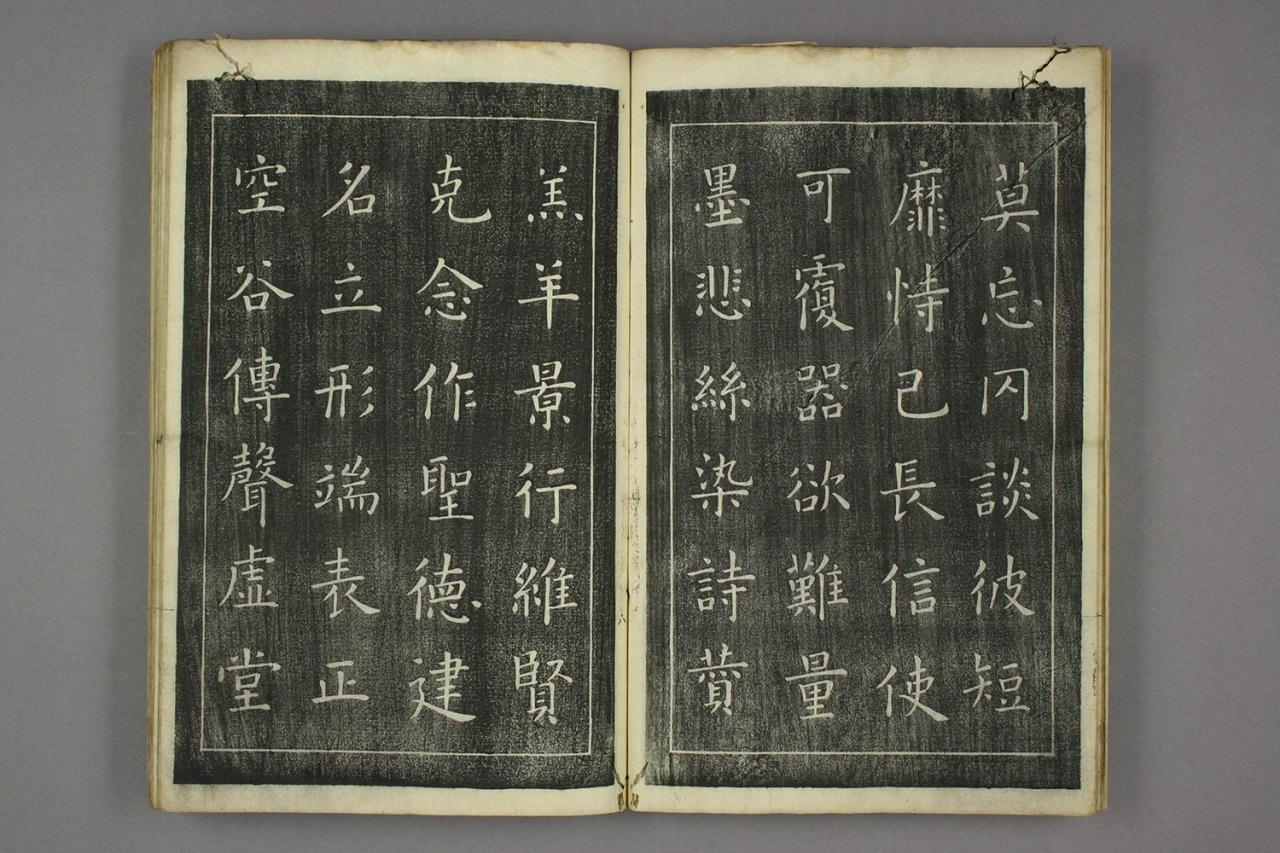 莫忘罔談彼短
靡恃己長信使
可覆器欲難量
墨悲絲染詩賛
羔羊景行維賢
克念作聖德建
名立形端表正
空谷傳聲虛堂
六